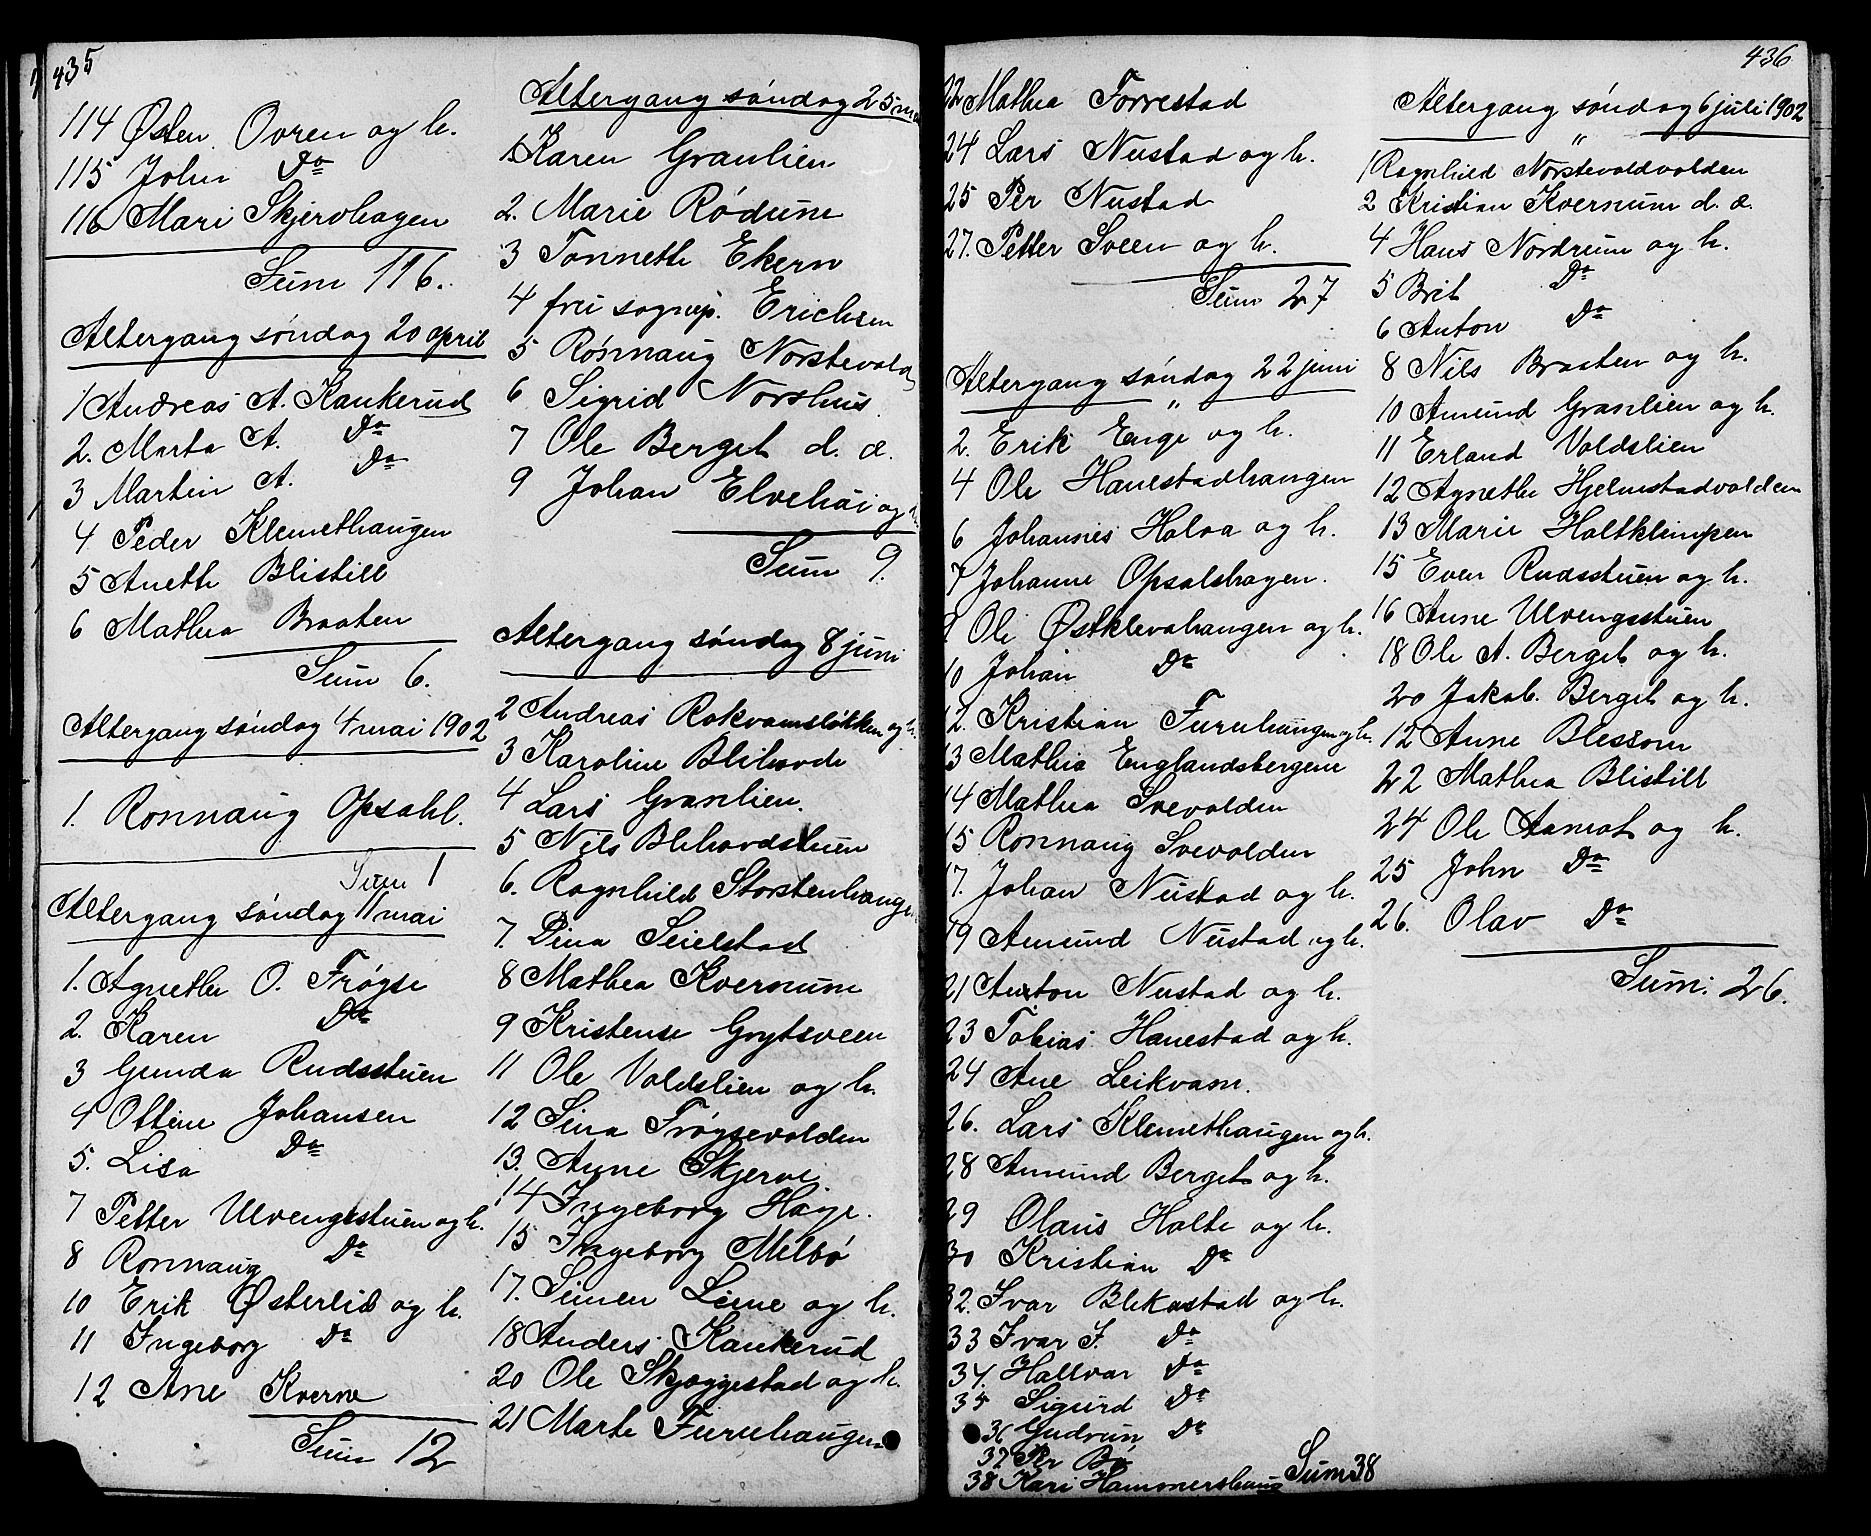 435
114 Østen Ovren og h.
115 John Do
116 Mari Skjervhagen
Sum 116.
Altergang søndag 20 april
1 Andreas A. Kankerud
2. Marta A. Do
3 Martin A. Do
4 Peder Klemethaugen
5 Anethe Blistill
6 Mathea Braaten
Sum 6.
Altergang søndag 4 mai 1902
1. Rønnaug Opsahl.
Sum 1
Altergang søndag 11 mai
1. Agnethe O. Frøyse
2. Karen Do
3 Gunda Rudsstuen
4 Ottine Johansen
5. Lisa Do
7 Petter Ulvengsstuen og h.
8 Rønnaug Do
10 Erik Østerlid og h.
11 Ingeborg Do
12 Ane Kverne
Sum 12
Altergang søndag 25 mai
1. Karen Granlien
2. Marie Rødum
3 Tonnethe Ekern
4 fru sognep. Erichsen
5 Rønnaug Norstevold
6 Sigrid Norshus
7 Ole Berget d. æ.
9 Johan Elvehøi og h.
Sum 9.
Altergang søndag 8 juni
2 Andreas Rokvamsløkken og h.
3 Karoline Blihovde
4 Lars Granlien.
5 Nils Blihovdstuen
6. Ragnhild Storstenhaugen
7. Dina Seielstad
8 Mathea Kvernum
9 Kristense Grytsveen
11 Ole Voldslien og h.
12 Sina Frøysevolden
13. Anne Skjerve
14 Ingeborg Høye.
15 Ingeborg Melbø
17. Simen Lime og h.
18 Anders Kankerud
20 Ole Skjæggestad og h.
21 Marthe Furuhaugen
436
22 Mathea Forrestad
24 Lars Nustad og h.
25 Per Nustad
27. Petter Sveen og h.
Sum 27
Altergang søndag 22 juni
2. Erik Enge og h.
4 Ole Hanestadhaugen
6 Johannes Holva og h.
7 Johanne Opsalshagen.
9 Ole Østklevahaugen og h.
10 Johan Do
12. Kristian Furuhaugen og h.
13 Mathia Englandsbergene
14 Mathea Svevolden
15 Rønnaug Svevolden
17. Johan Nustad og h.
19 Amund Nustad og h.
21 Anton Nustad og h.
23 Tobias Hanestad og h.
24 Ane Leikvam.
26. Lars Klemethaugen og h.
28 Amund Berget og h.
29 Olaus Holte og h.
30 Kristian Do
32. Ivar Blekastad og h.
33 Ivar I. Do
34. Hallvar Do
35 Sigurd Do
36 Gudrun Do
37 Per Bø
38 Kari Hammershaug
Sum 38
Altergang søndag 6 juli 1902
1 Ragnhild Norstevoldvolden
2 Kristian Kvernum d. æ.
4 Hans Nordrum og h.
5 Brit Do
6 Anton Do
8 Nils Braaten og h.
10 Amund Granlien og h.
11 Erland Voldslien
12 Agnethe Hjelmstadvolden
13 Marie Holtklimpen
15 Even Rudsstuen og h.
16 Anne Ulvengsstuen
18 Ole A. Berget og h.
20 Jakob. Berget og h.
12 Anne Blessom
22 Mathea Blistill
24 Ole Aamot og h.
25 John Do
26. Olav Do
Sum: 26.